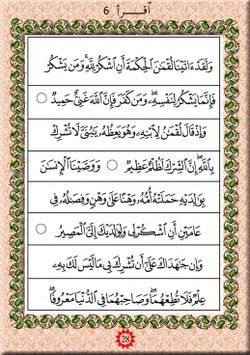 أقرأ 6
وَلَقَدْ ءَاتَيْنَا لُقْمَٰنَ ٱلْحِكْمَةَ أَنِ ٱشْكُرْ لِلَّهِ ۚ وَمَن يَشْكُرْ
فَإِنَّمَا يَشْكُرُ لِنَفْسِهِۦ ۖ وَمَن كَفَرَ فَإِنَّ ٱللَّهَ غَنِىٌّ حَمِيدٌ
وَإِذْ قَالَ لُقْمَٰنُ لِٱبْنِهِۦ وَهُوَ يَعِظُهُۥ يَٰبُنَىَّ لَا تُشْرِكْ
بِٱللَّهِ ۖ إِنَّ ٱلشِّرْكَ لَظُلْمٌ عَظِيمٌ وَوَصَّيْنَا ٱلْإِنسَٰنَ
بِوَٰلِدَيْهِ حَمَلَتْهُ أُمُّهُۥ وَهْنًا عَلَىٰ وَهْنٍ وَفِصَٰلُهُۥ فِى
عَامَيْنِ أَنِ ٱشْكُرْ لِى وَلِوَٰلِدَيْكَ إِلَىَّ ٱلْمَصِيرُ
وَإِن جَٰهَدَاكَ عَلَىٰٓ أَن تُشْرِكَ بِى مَا لَيْسَ لَكَ بِهِۦ
عِلْمٌ فَلَا تُطِعْهُمَا ۖ وَصَاحِبْهُمَا فِى ٱلدُّنْيَا مَعْرُوفًا ۖ
28